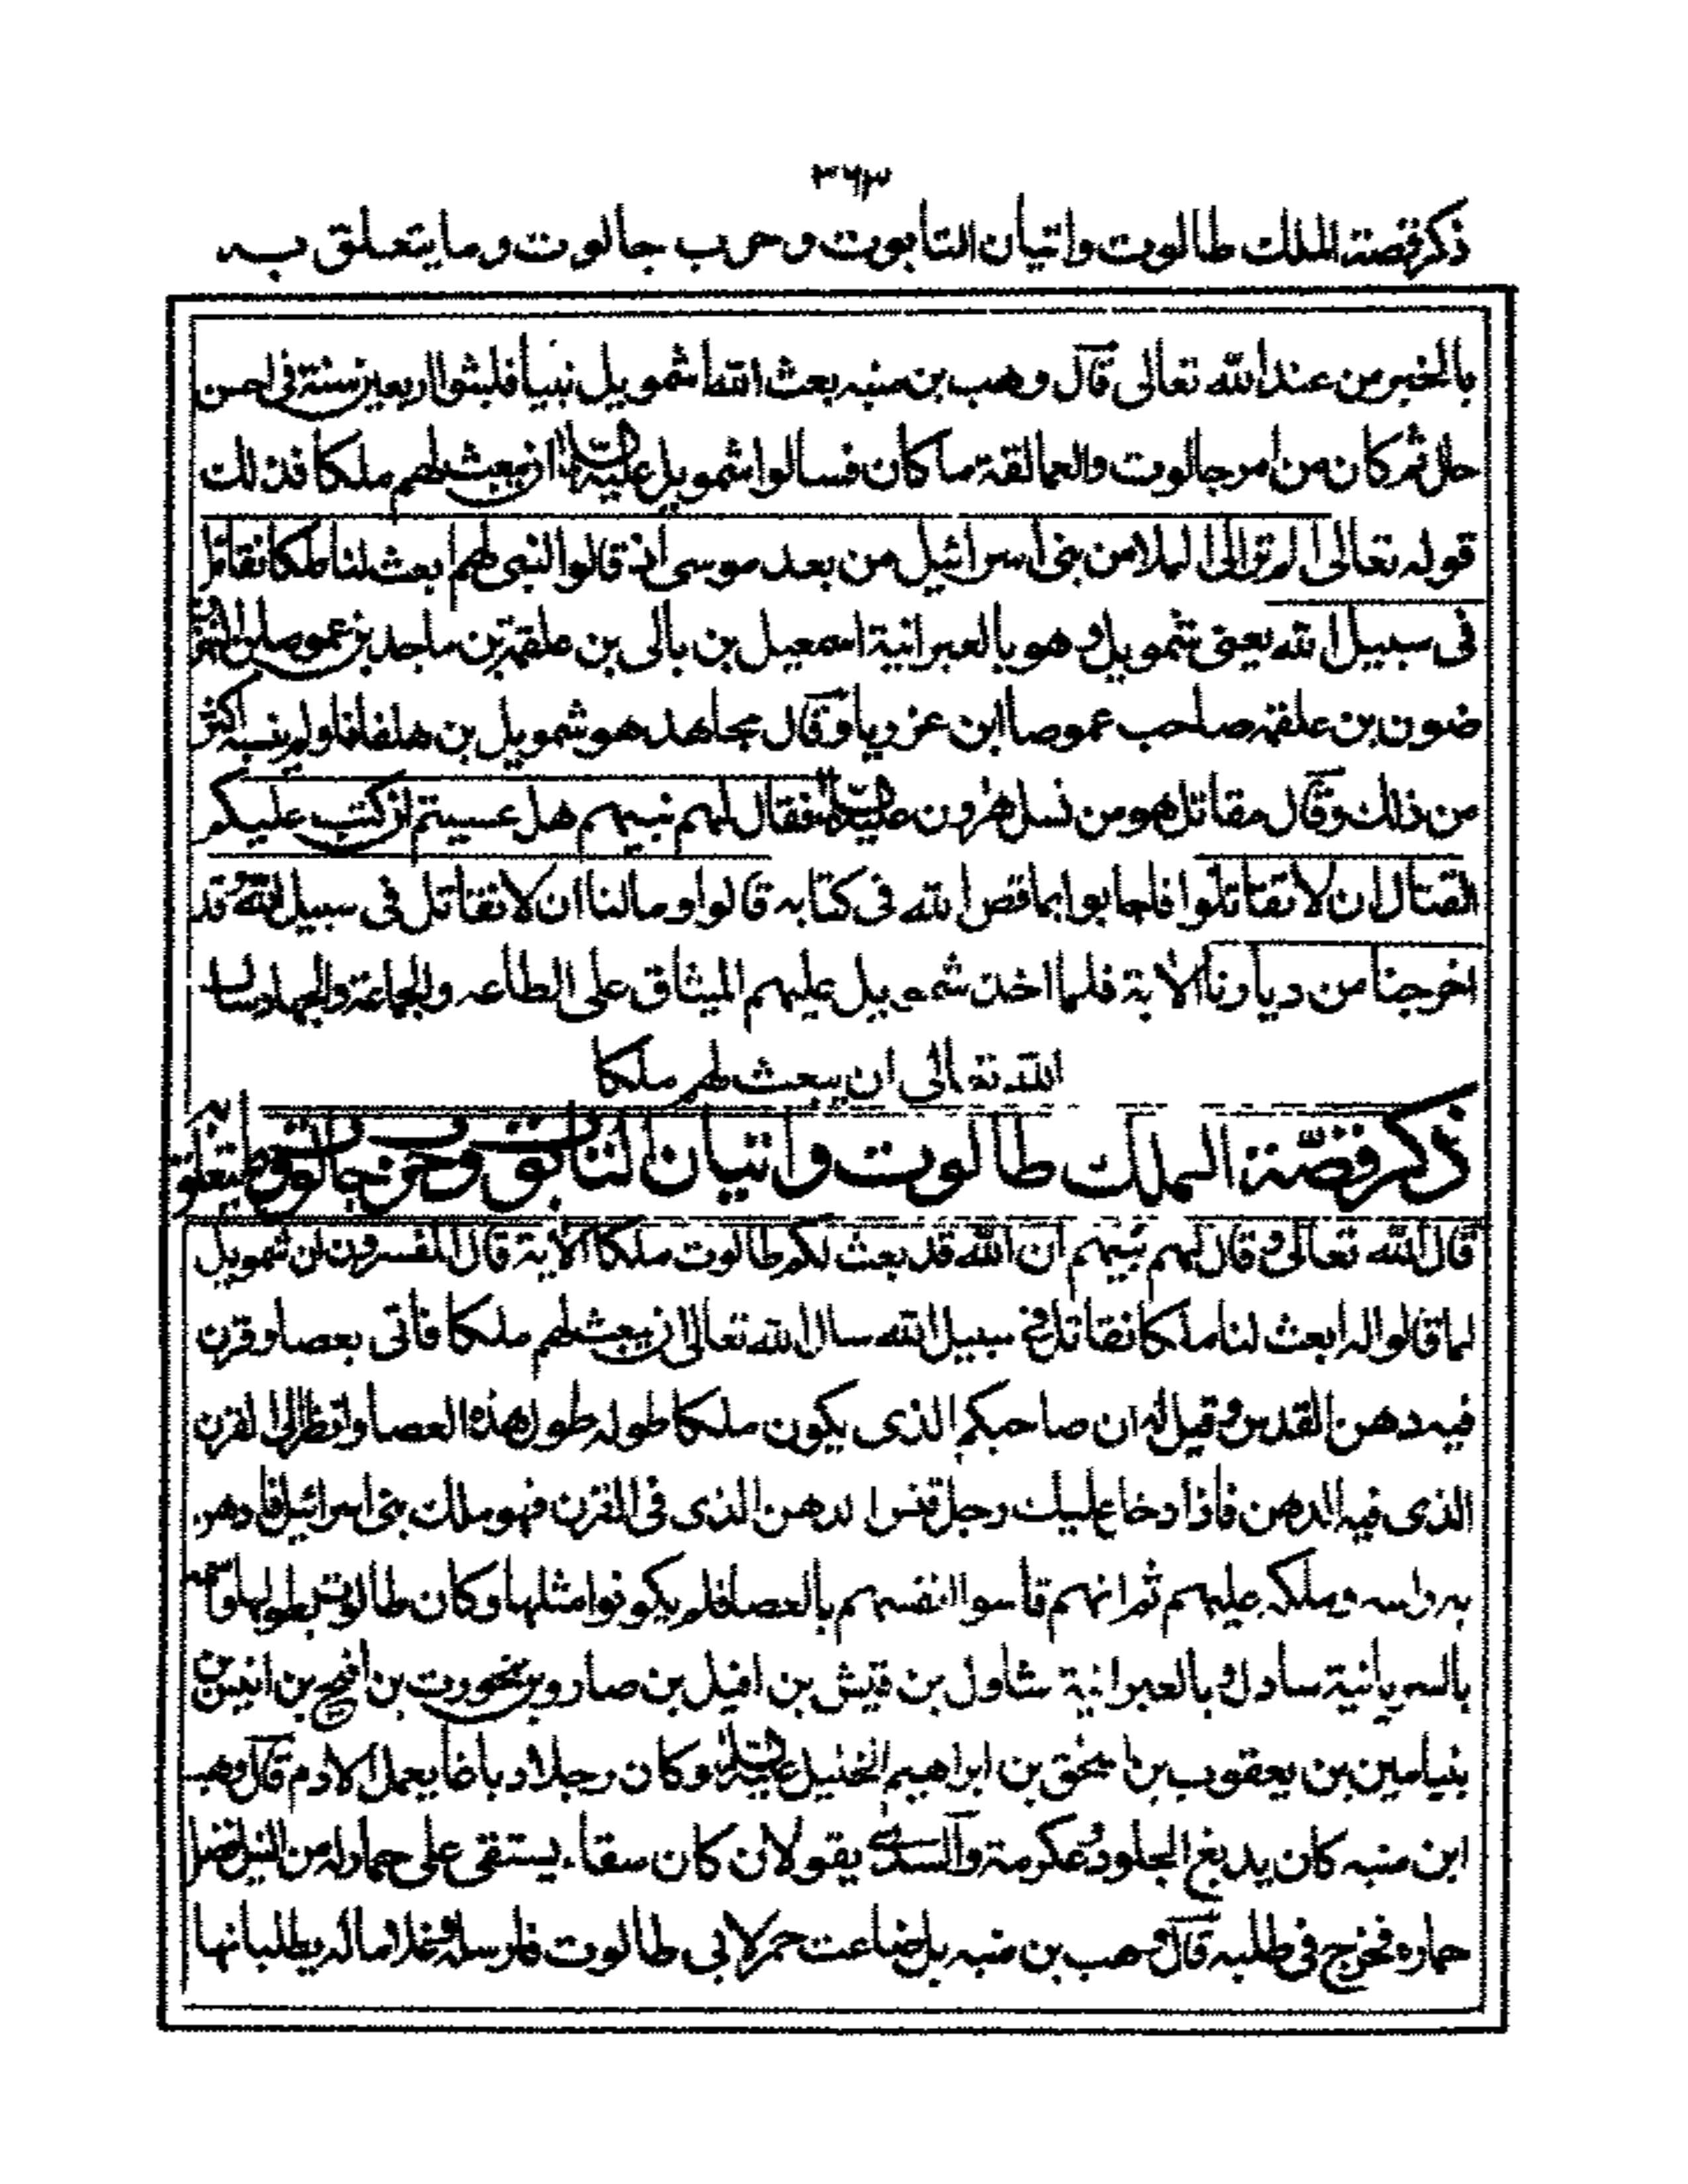 ٣٦٣
ذكر قصة الملك طالوت واتيان التابوت وحرب جالوت وما يتعلق به
بالخبر من عند الله تعالى قال وهب بن منبه بعث الله اشمويل نبيا فلبثوا اربعين سنة فى احسن
حال ثم كان من امر جالوت والعمالقة ما كان فسالوا شمويل عليه السلام ان يبعث لهم ملكا فذلك
قوله تعالى الم تر الى الملا من بنى اسرائيل من بعد موسى اذ قالوا لنبى لهم ابعث لنا ملكا نقاتل
فى سبيل الله يعنى شمويل وهو بالعبرانية اسمعيل بن بالى بن علقمة بن ماجد بن عموصا بن
ضون بن علقمة صاحب عموصا ابن عزريا وقال مجاهد هو شمويل بن هلفافا ولم ينسبه اكثر
من ذلك وقال مقاتل هو من نسل هٰرون عليه السلام فقال لهم نبيهم هل عسيتم ان كتب عليكم
القتال ان لا تقاتلوا فاجابوا بما قص الله فى كتابه قالوا وما لنا ان لا نقاتل فى سبيل الله وقد
اخرجنا من ديارنا الاية فلما اخذ شمويل عليهم الميثاق على الطاعه والجماعة والجهاد سال
الله تعالى ان يبعث لهم ملكا
ذكر قصّة الملك طالوت واتيان التابوت وحرب جالوت وما يتعلق به
قال الله تعالى وقال لهم نبيهم ان الله قد بعث لكم طالوت ملكا الاية قال المفسرون ان شمويل
لما قالوا له ابعث لنا ملكا نقاتل فى سبيل الله سال الله تعالى ان يبعث لهم ملكا فأتى بعصا وقرن
فيه دهن القدس وقيل له ان صاحبكم الذى يكون ملكا طوله طول هذه العصا وانظر الى القرن
الذى فيه الدهن فاذا دخل عليك رجل فنش الدهن الذى فى القرن فهو ملك بنى اسرائيل فادهن
به راسه وملكه عليهم ثم انهم قاسوا انفسهم بالعصا فلم يكونوا مثلها وكان طالوت بطولها واسمه
بالسريانية سادل وبالعبرانية شاول بن قيش بن افيل بن صارو بن نحورت بن افيح بن انيس بن
بنيامين بن يعقوب بن اسحٰق بن ابراهيم الخليل عليه السلام وكان رجلا دباغا يعمل الادم قال وهب
ابن منبه كان يدبغ الجلود وعكرمة والسدى يقولان كان سقاء يستقى على حمار له من النيل فضل
حماره فخرج فى طلبه قال وهب بن منبه بل ضاعت حمر لابى طالوت فارسله وغلاما له يطلبانها